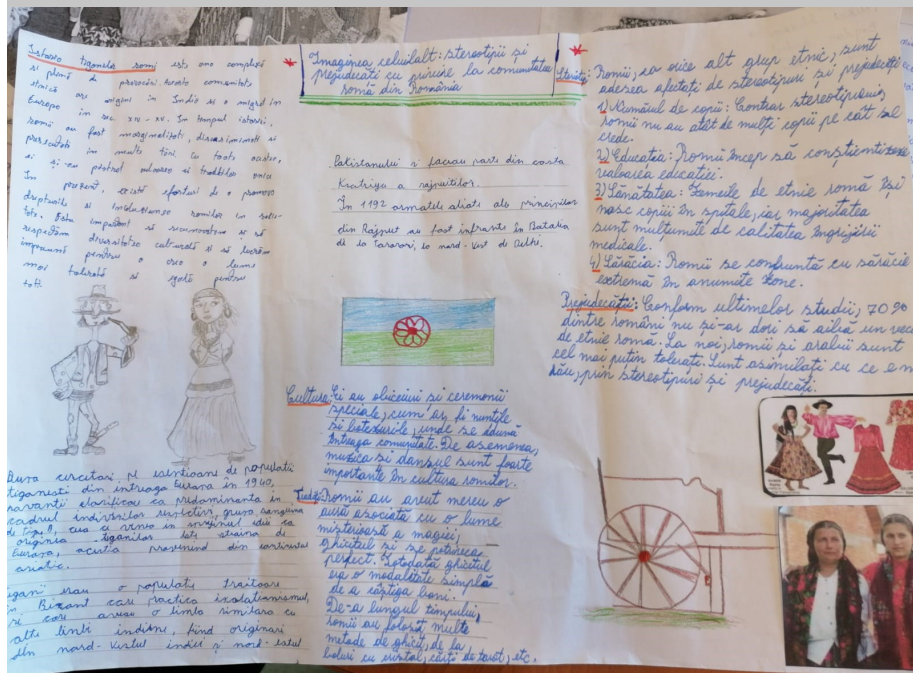 Istoria țiganilor romi este una complexă
și plină de provocări. Această comunitate
etnică are origini în India și a migrat în
Europa în sec. XIV - XV. În timpul istoriei,
romii au fost marginalizați, discriminați și
persecutați în multe țări. Cu toate acestea,
ei și-au păstrat cultura și tradițiile unice
În prezent, există eforturi de a promova
drepturile și incluziunea romilor în socie-
tate. Este important să recunoaștem și să
respectăm diversitatea culturală și să lucrăm
împreună pentru a crea o lume
mai tolerată și egală pentru
toți
După cercetări pe eșantioane de populații
țigănești din întreaga Europa în 1940,
savanții clasifica ca predominanta in
cadrul indivizilor respectivi, grupa sanguina
originea țiganilor este straina de
Europa, acestia provenind din continentul
asiatic.
țigani erau o populație traitoare
în Bizanț care practica izolationismul,
și care aveau o limba similara cu
alte limbi indiene, fiind originari
din nord-vestul indiei și nord-estul
Imaginea celuilalt: stereotipii și
prejudecăți cu privire la comunitatea
romă din România
Pakistanului și făceau parte din casta
Ksatriya a rajputilor.
În 1192 armatele aliate ale prinților
din Rajput au fost infrante în Batalia
de la Taraori, la nord-vest de Delhi.
Cultura: Ei au obiceiuri si ceremonii
speciale, cum ar fi nunțile
si botezurile, unde se adună
întreaga comunitate. De asemenea,
muzica si dansul sunt foarte
importante în cultura romilor.
Tradiții: Romii au avut mereu o
aură asociată cu o lume
misterioasă a magiei,
ghicitul si se potrivea
perfect. Totodată ghicitul
era o modalitate simplă
de a câștiga bani.
De-a lungul timpului,
romii au folosit multe
metode de ghicit, de la
boluri cu cristal, cărți de tarot, etc.
Romii, ca orice alt grup etnic, sunt
adesea afectați de stereotipuri și prejudecăți
1) Numărul de copii: Contrar stereotipului,
romii nu au atât de mulți copii pe cât se
crede.
2) Educația: Romii încep să conștientizeze
valoarea educației.
3) Sănătatea: Femeile de etnie romă își
nasc copiii în spitale, iar majoritatea
sunt mulțumite de calitatea îngrijirii
medicale.
4) Sărăcia: Romii se confruntă cu sărăcie
extremă în anumite zone.
Prejudecății: Conform ultimelor studii, 70%
dintre români nu și-ar dori să aibă un vecin
de etnie romă. La noi, romii și arabii sunt
cel mai puțin tolerați. Sunt asimilați cu ce e mai
rău, prin stereotipuri și prejudecăți.